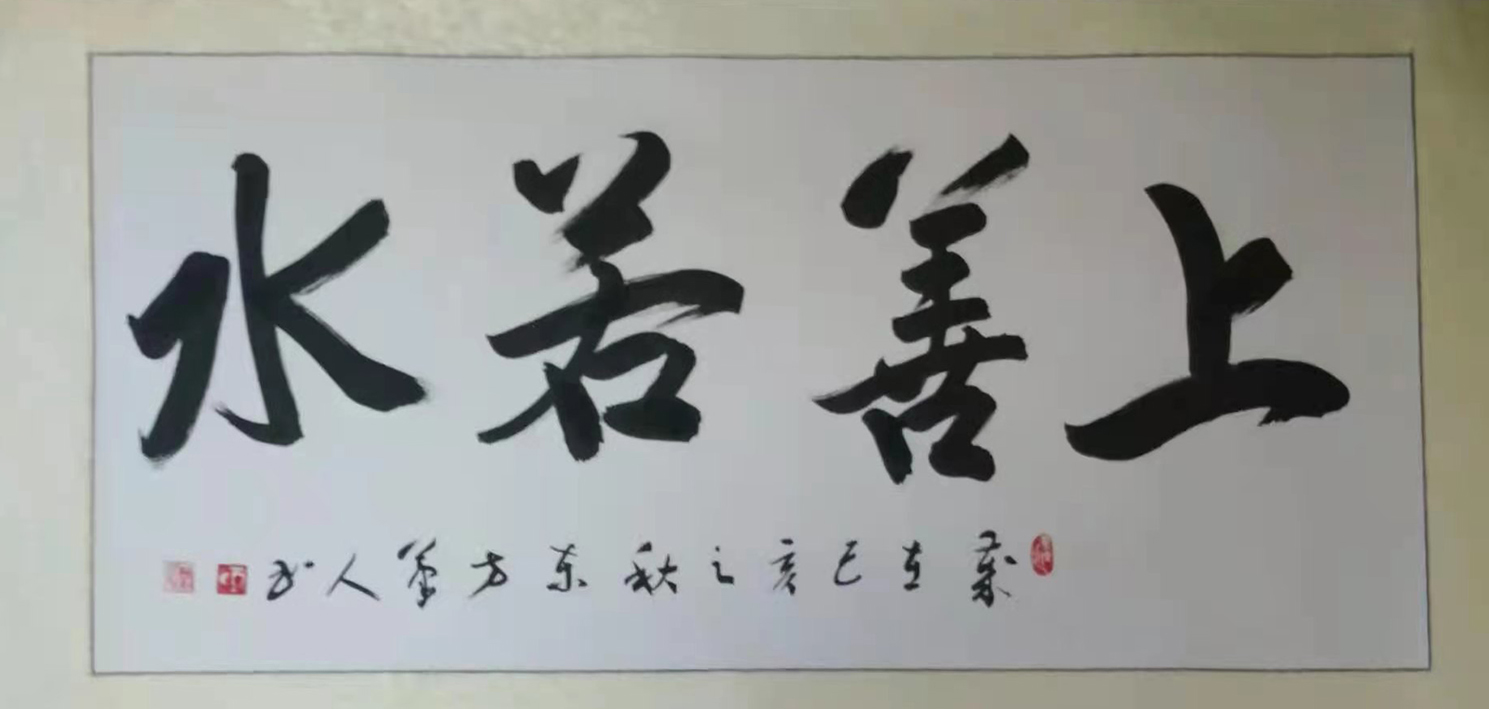 上善若水
岁在己亥之秋东方笔人书